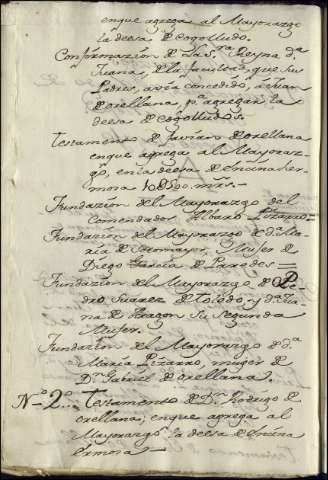 enque agrega al Mayorazgo
la deesa de cogolludo.
Confirmazion de la S.ra Reyna d.a
Juana, de la facultad, que sus
Padres, avia concedido, a Juan
de orellana, p.a agregar la
deesa de cogolludo.
Testamento de Javian de orellana
enque agrega al Mayoraz-
go, en la deesa de encina her-
mosa 10U500. mrs.
Fundazion del Mayorazgo del
Comendador Alvaro Pizarro.
Fundazion del Mayorazgo de d.a Ma-
ria de Sotomayor, Mujer de
Diego Garcia de Paredes =
Fundazion del Mayorazgo de D.n Pe-
dro Suarez de Toledo, y d.a Jua-
na de Aragon Su Segunda
Mujer.
Fundazion del Mayorazgo de d.a
Maria Pizarro, muger de
D.n Gabriel de orellana.
N.o 2.o... Testamento de D.n Rodrigo de
orellana; enque agrega al
Mayorazgo la deesa de encina
ermosa